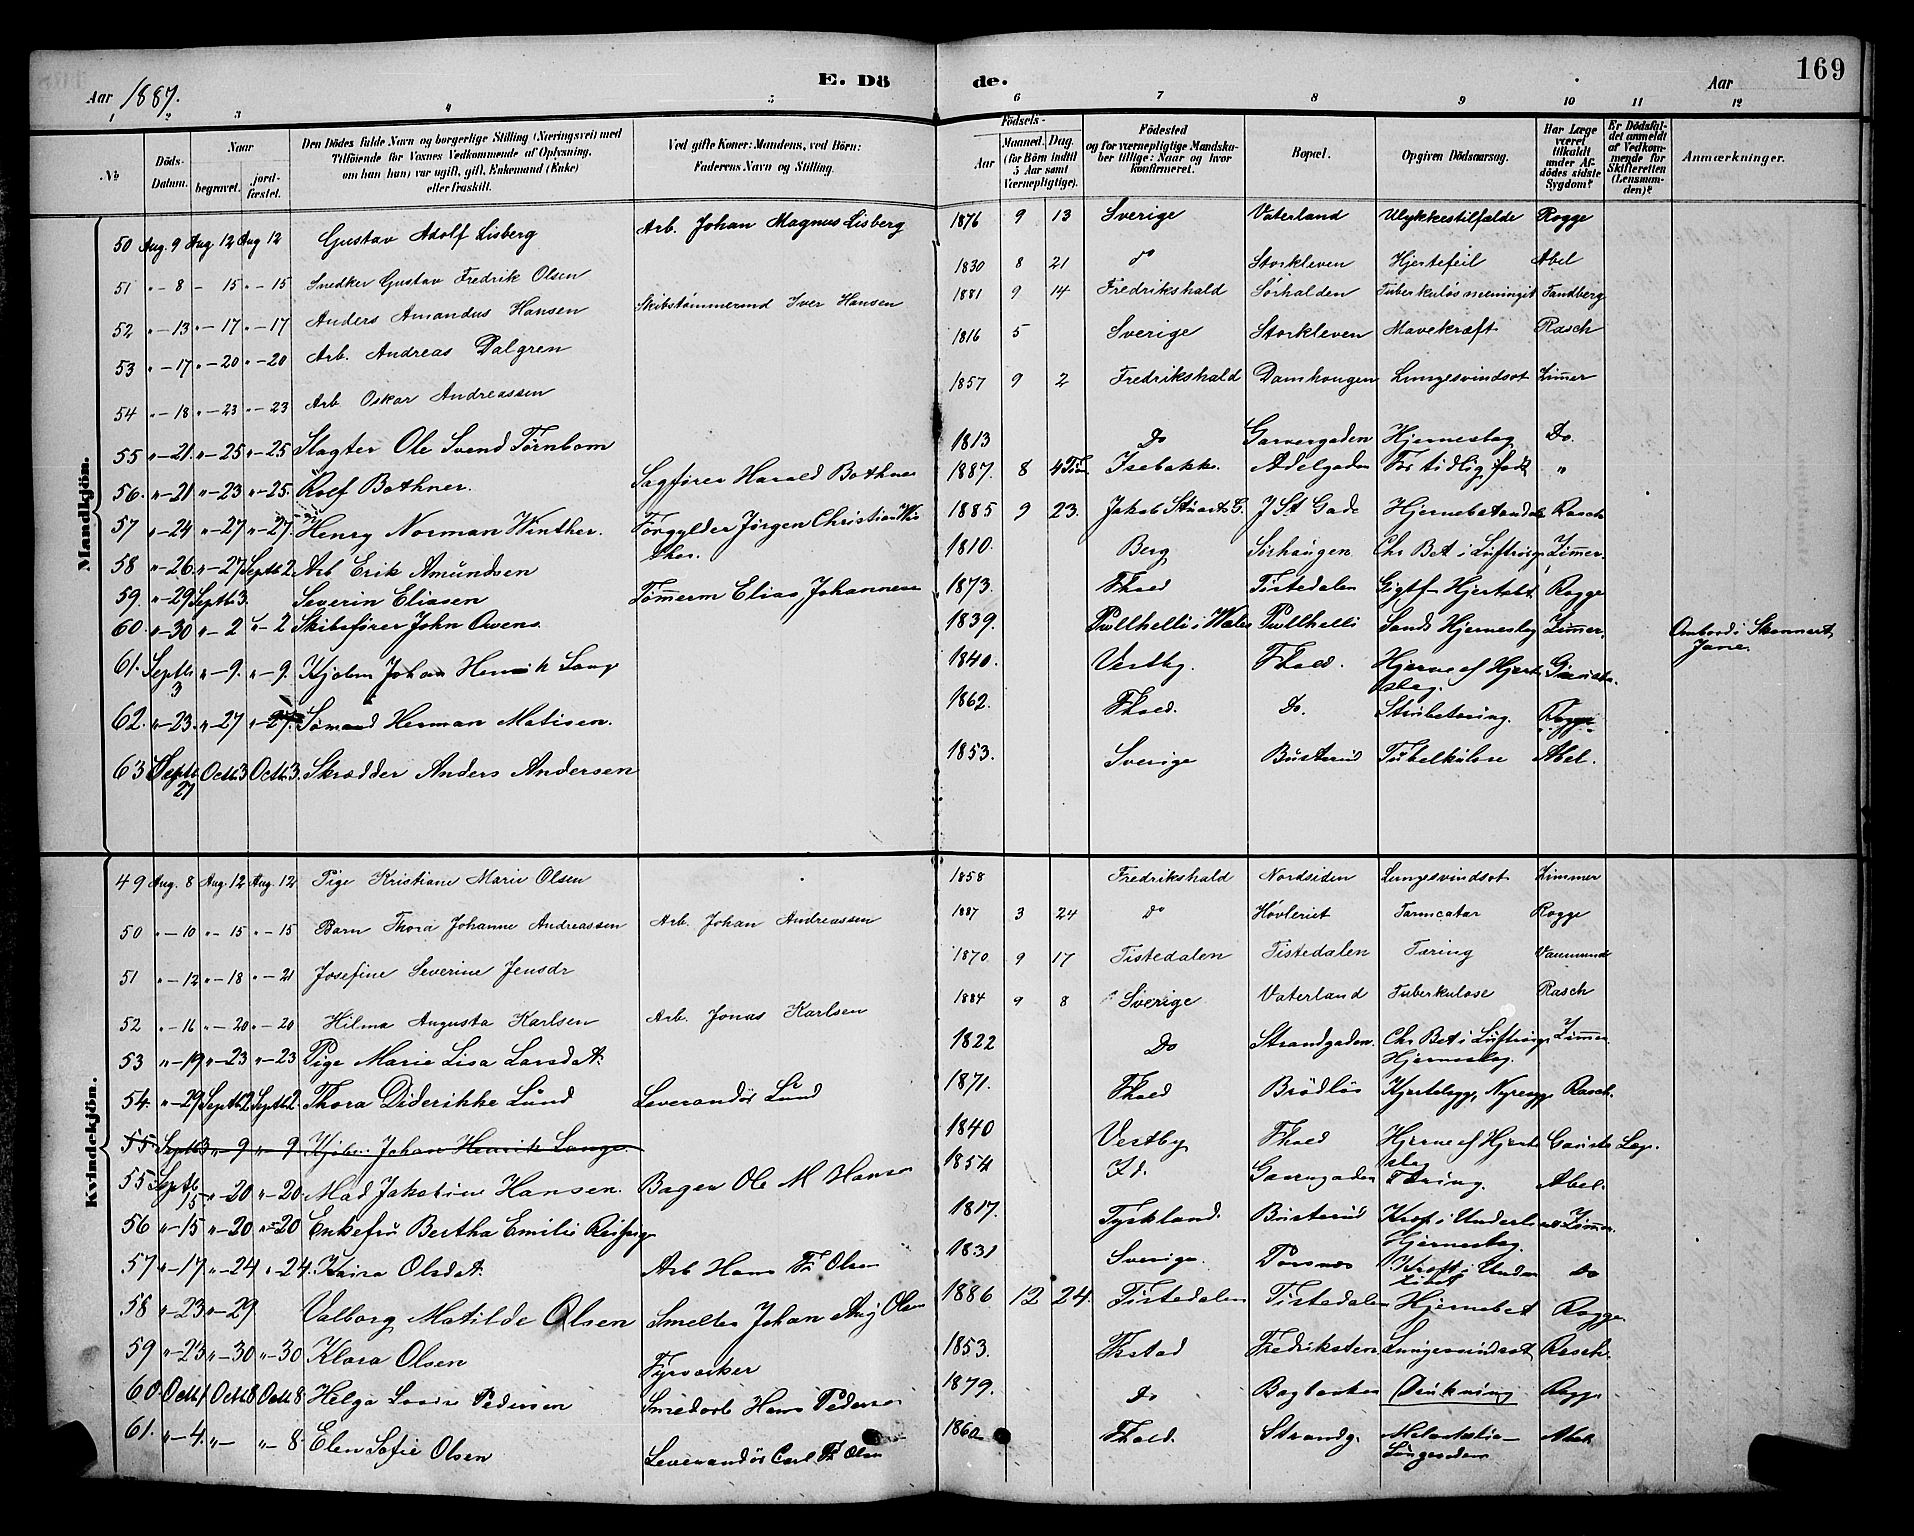 Aar 1887. E. Dö de. Aar 169
1 2 3 4 5 6 7 8 9 10 11 12
No
Döds-Datum.
Naar
begravet.
jord-fæstet.
Den Dödes fulde Navn og borgerlige Stilling (Næringsvei) med
Tilföiende for Voxnes Vedkommende af Oplysning,
om han (hun) var ugift, gift, Enkemand (Enke)
eller fraskilt.
Ved gifte Koner: Mandens, ved Börn:
Faderens Navn og Stilling.
Födsels-
Aar
Maaned. Dag.
(for Börn indtil
5 Aar samt
Værnepligtige).
Födested
og for værnepligtige Mandska-
ber tillige: Naar og hvor
konfirmeret.
Bopæl.
Opgiven Dödsaarsag.
Har Læge
været
tilkaldt
under Af-
dödes sidste
Sygdom?
Er Dödsfal-
det anmeldt
af Vedkom-
mende for
Skifteretten
(Lensman-
den)?
Anmærkninger.
Mandkjön.
50 Aug. 9 Aug 12 Aug 12 Gustav Adolf Lisberg Arb. Johan Magnus Lisberg 1876 9 13 Sverige Vaterland Ulykkestilfælde Rogge
51 " - 8 - 15 " - 15 Snedker Gustav Fredrik Olsen 1830 8 21 do Storkleven Hjertefeil Abel
52 " - 13 " - 17 " - 17 Anders Amandus Hansen Skibstømmermd Iver Hansen 1881 9 14 Fredrikshald Sørhalden Tuberkuløs meningit Tandberg
53 " - 17 " - 20 " - 20 Arb. Andreas Dalgren 1816 5 Sverige Storkleven Mavekræft Rasch
54 " - 18 " - 23 " - 23 Arb Oskar Andreassen 1857 9 2 Fredrikshald Damhougen Lungesvindsot Zimmer
55 " - 21 " - 25 " - 25 Slagter Ole Svend Tørnbom 1813 Do Garvergaden Hjerneslag Do.
56. " - 21 " - 23 " - 25. Rolf Bothner. Sagfører Harald Bothner 1887. 8 4 Tim Isebakke. Adelgaden For tidlig født "
57 " - 24 " - 27 " - 27. Henry Norman Winther. Forgylder Jørgen Christian Win
ther. 1885 9 23. Jakob Stuarts G. J St Gade Hjernebetændel Rasch
58 " - 26. " - 27 Septb 2. Arb Erik Amundsen 1810. Berg Sørhaugen. Chr Bet i Luftrörs Zimmer.
59. " - 29 Septb 3. Severin Eliasen Tømmerm Elias Johannesen 1873. Fhald Tistedalen Gigtf- Hjertebet Rogge
60 " - 30 " - 2 " - 2 Skibsfører John Owens 1839. Pwllheli i Wales Pwllheli Sands Hjerneslag Zimmer. Ombord i Skonnert
Jane.
61. Septb 3 " - 9. " - 9. Kjøbm Johan Henrik Lang 1840. Vestby. Fhald. Hjerne af Hjerte
slag.
62. " - 23. " - 27 " - 27. Sømand Herman Matisen. 1862. Fhald. Do. Strubetæring. Rogge
63 Septb 27 Octb 3 Octb 3. Skrædder Anders Andersen 1853. Sverige Busterud Tubelkulose Abel.
Kvindekjön.
49 Aug. 8 Aug. 12 Aug. 12 Pige Kristiane Marie Olsen 1858 Fredrikshald Nordsiden Lungesvindsot Zimmer
50 " - 10 " - 15 " - 15 Barn Thora Johanne Andreassen Arb. Johan Andreassen 1887 3 24 Do Høvleriet Tarmcatar Rogge
51 " - 12 " - 18 " - 21 Josefine Severine Jensdr 1870 9 17 Tistedalen Tistedalen Tæring Vaumund
52 " - 16 " - 20 " - 20 Hilma Augusta Karlsen Arb. Jonas Karlsen 1884 9 8 Sverige Vaterland Tuberkulose Rasch
53 " - 19 " - 23 " - 23 Pige Marie Lisa Larsdat. 1822 Do Strandgaden. Chr Bet i Luftrörs
Hjerneslag. Zimmer
54. " - 29 Septb 2 Septb 2. Thora Diderikke Lund Leverandör Lund 1871. Fhald Brödløs Kjertelsyg, Nyresyg, Rasch.
55. Septb 3 " - 9 " - 9. Kjøbm Johan Henrik Lange. 1840 Vestby Fhald Hjerne af Hjerte
slag
55 Septb 15 " - 20 " - 20. Mad Jakobine Hansen. Bager Ole M Hansen 1854 Id. Tæring. Abel.
56 " - 15 " - 20 " - 20 Enkefru Bertha Emilie 1817. Tyskland. Busterud Kræft i Underlivet
Hjerneslag. Zimmer
57 " - 17 " - 24 " - 24. Olsdat. Arb Hans Fr Olsen 1831 Sverige. Kræft i Under
livet Do
58 " - 23 " - 29 Valborg Matilde Olsen Smelter Johan Aug Olsen 1886 12 24. Tistedalen Tistedalen Hjernebet Rogge
59 " - 23 " - 30 " - 30 Klara Olsen Fyrvøkter 1853. Fstad Fredriksten Lungesvindsot Rasch.
60 Octb 1 Octb 8 Octb 8 Helga Lovise Pedersen Smedarb Hans Pedersen 1879. Do Drukning Rogge
61. " - 4. " - " - 8. Elen Sofie Olsen Leverandör Carl Fr Olsen 1860 Fhald. Strandg. Abel